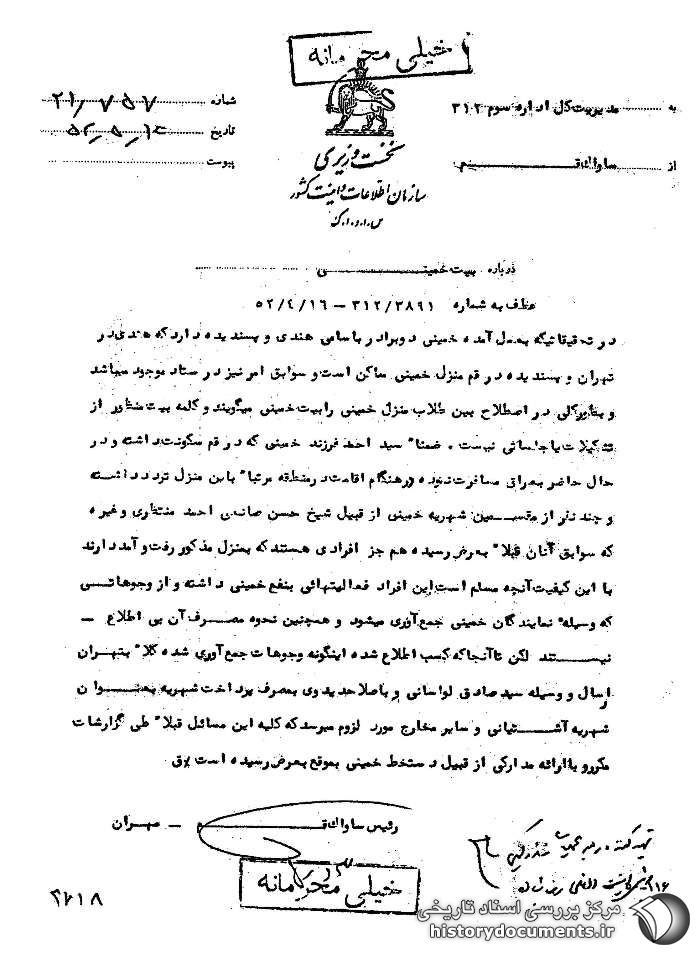 خیلی محرمانه
به مدیریت کل اداره سوم ۳۱۲
از ساواک قم
شماره ۲۱/۷۵۷
تاریخ
پیوست
نخست وزیری
سازمان اطلاعات و امنیت کشور
س.ا.و.ا.ک
درباره بیت خمینی
عطف به شماره ۳۱۲/۳۸۹۱ – ۵۲/۴/۱۶
در تحقیقاتیکه بعمل آمده خمینی دو برادر باسامی هندی و پسندیده دارد که هندی در
تهران و پسندیده در قم منزل خمینی ساکن است و سوابق امر نیز در ستاد موجود میباشد
و بطورکلی در اصطلاح بین طلاب منزل خمینی را بیت خمینی میگویند و کلمه بیت منظور از
تشکیلات یا جلساتی نیست . ضمنا" سید احمد فرزند خمینی که در قم سکونت داشته و در
حال حاضر بعراق مسافرت نموده درهنگام اقامت در منطقه مرتبا" باین منزل تردد داشته
و چند نفر از مقسمین شهریه خمینی از قبیل شیخ حسن صانعی احمد منتظری و غیره
که سوابق آنان قبلا" بعرض رسیده هم جز افرادی هستند که بمنزل مذکور رفت و آمد دارند
با این کیفیت آنچه مسلم است این افراد فعالیتهائی بنفع خمینی داشته و از وجوهاتی
که وسیله نمایندگان خمینی جمع آوری میشود و همچنین نحوه مصرف آن بی اطلاع –
نیستند لکن تا آنجا که کسب اطلاع شده اینگونه وجوهات جمع آوری شده کلا" بتهران
ارسال و وسیله سید صادق لواسانی و با صلاحدید وی بمصرف پرداخت شهریه بعنوان
شهریه آشتیانی و سایر مخارج مورد لزوم میرسد که کلیه این مسائل قبلا" طی گزارشات
مکرر و با ارائه مدارکی از قبیل دستخط خمینی بموقع بعرض رسیده است
رئیس ساواک قم – مهران
خیلی محرمانه
مرکز بررسی اسناد تاریخی
historydocuments.ir